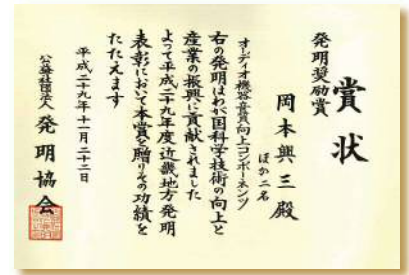 賞状
発明奨励賞
岡本興三殿
ほか二名
オーディオ機器音質向上コンポーネンツ
右の発明はわが国科学技術の向上と
産業の振興に貢献されました
よって平成二十九年度近畿地方発明
表彰において本賞を贈りその功績を
たたえます
平成二十九年十一月二十二日
公益社団法人発明協会